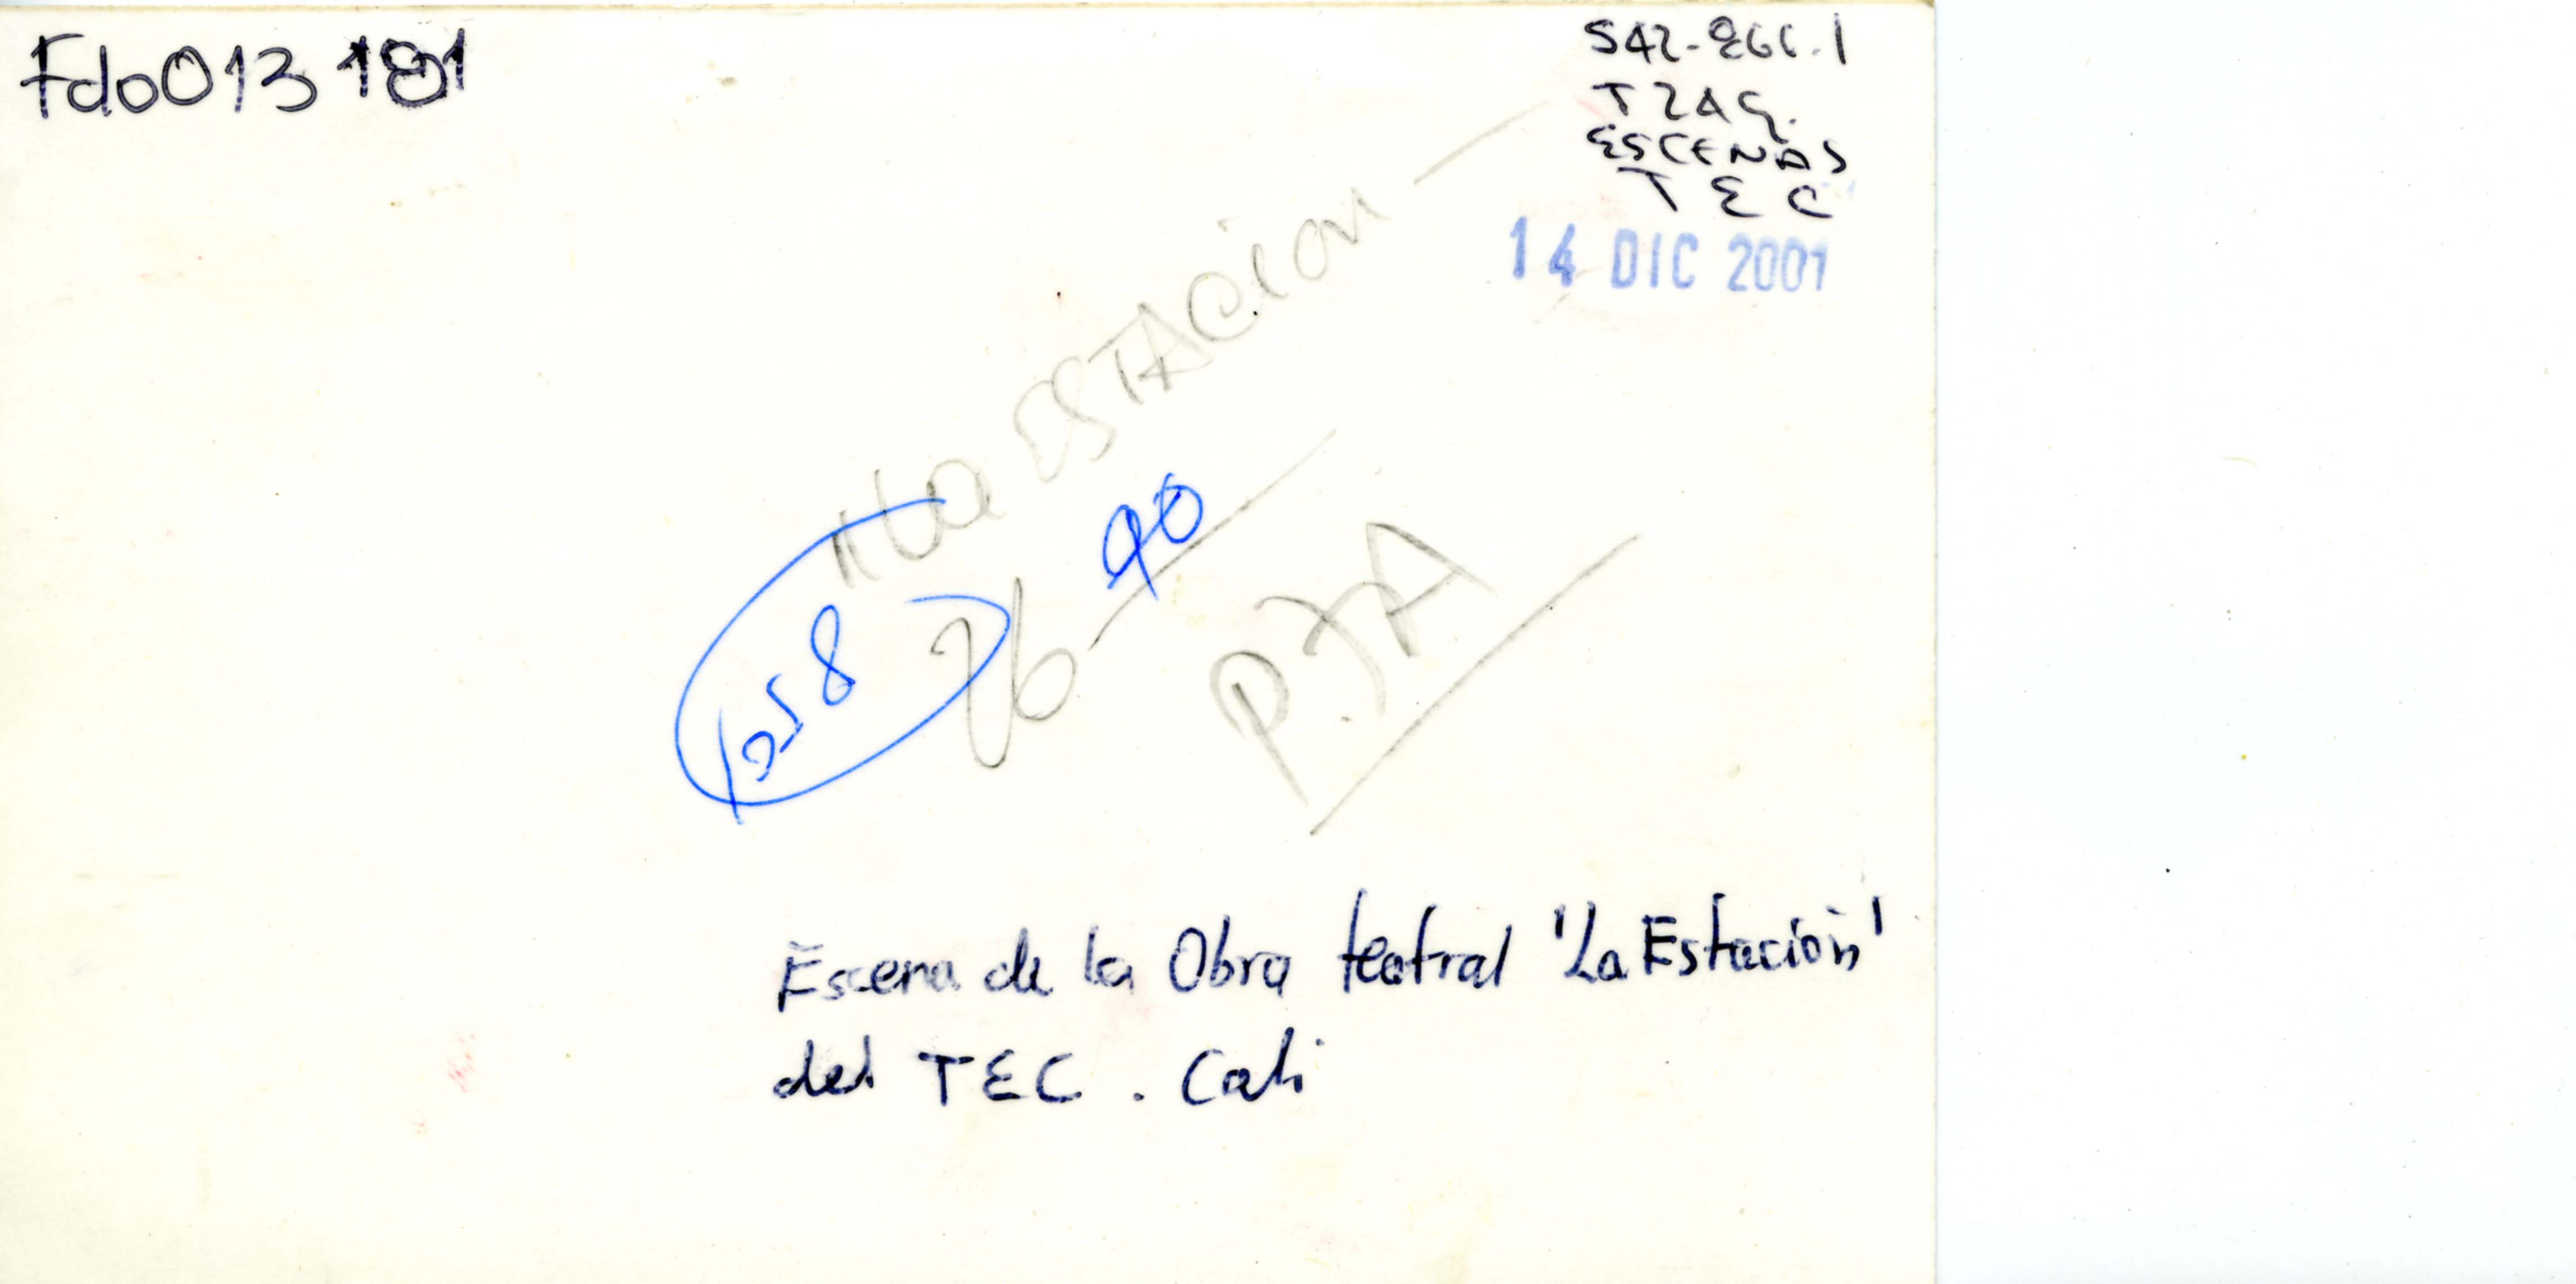 Fdo013 181
ESCENAS
TEC
14 DIC 2001
"La ESTACION —
90
26-
P.TA
Escena de la Obra teatral 'La Estación'
del TEC. Cali